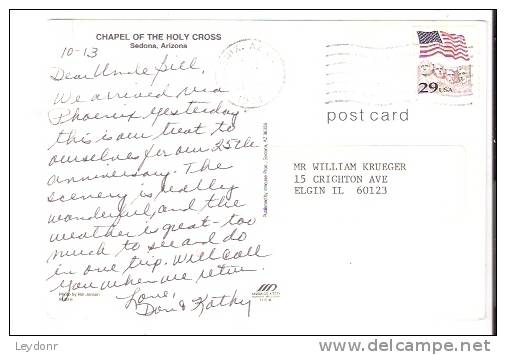 CHAPEL OF THE HOLY CROSS
Sedona, Arizona
10-13
Dear Uncle Bill,
We arrived via
Phoenix yesterday.
this is our treat to
ourselves for our 25th
anniversary. The
scenery is really
wonderful, and the
weather is great - too
much to see and do
in one trip. Will call
you when we return.
Love,
Don & Kathy
29 USA
post card
MR WILLIAM KRUEGER
15 CRIGHTON AVE
ELGIN IL 60123
Leydonr
delcampe.net